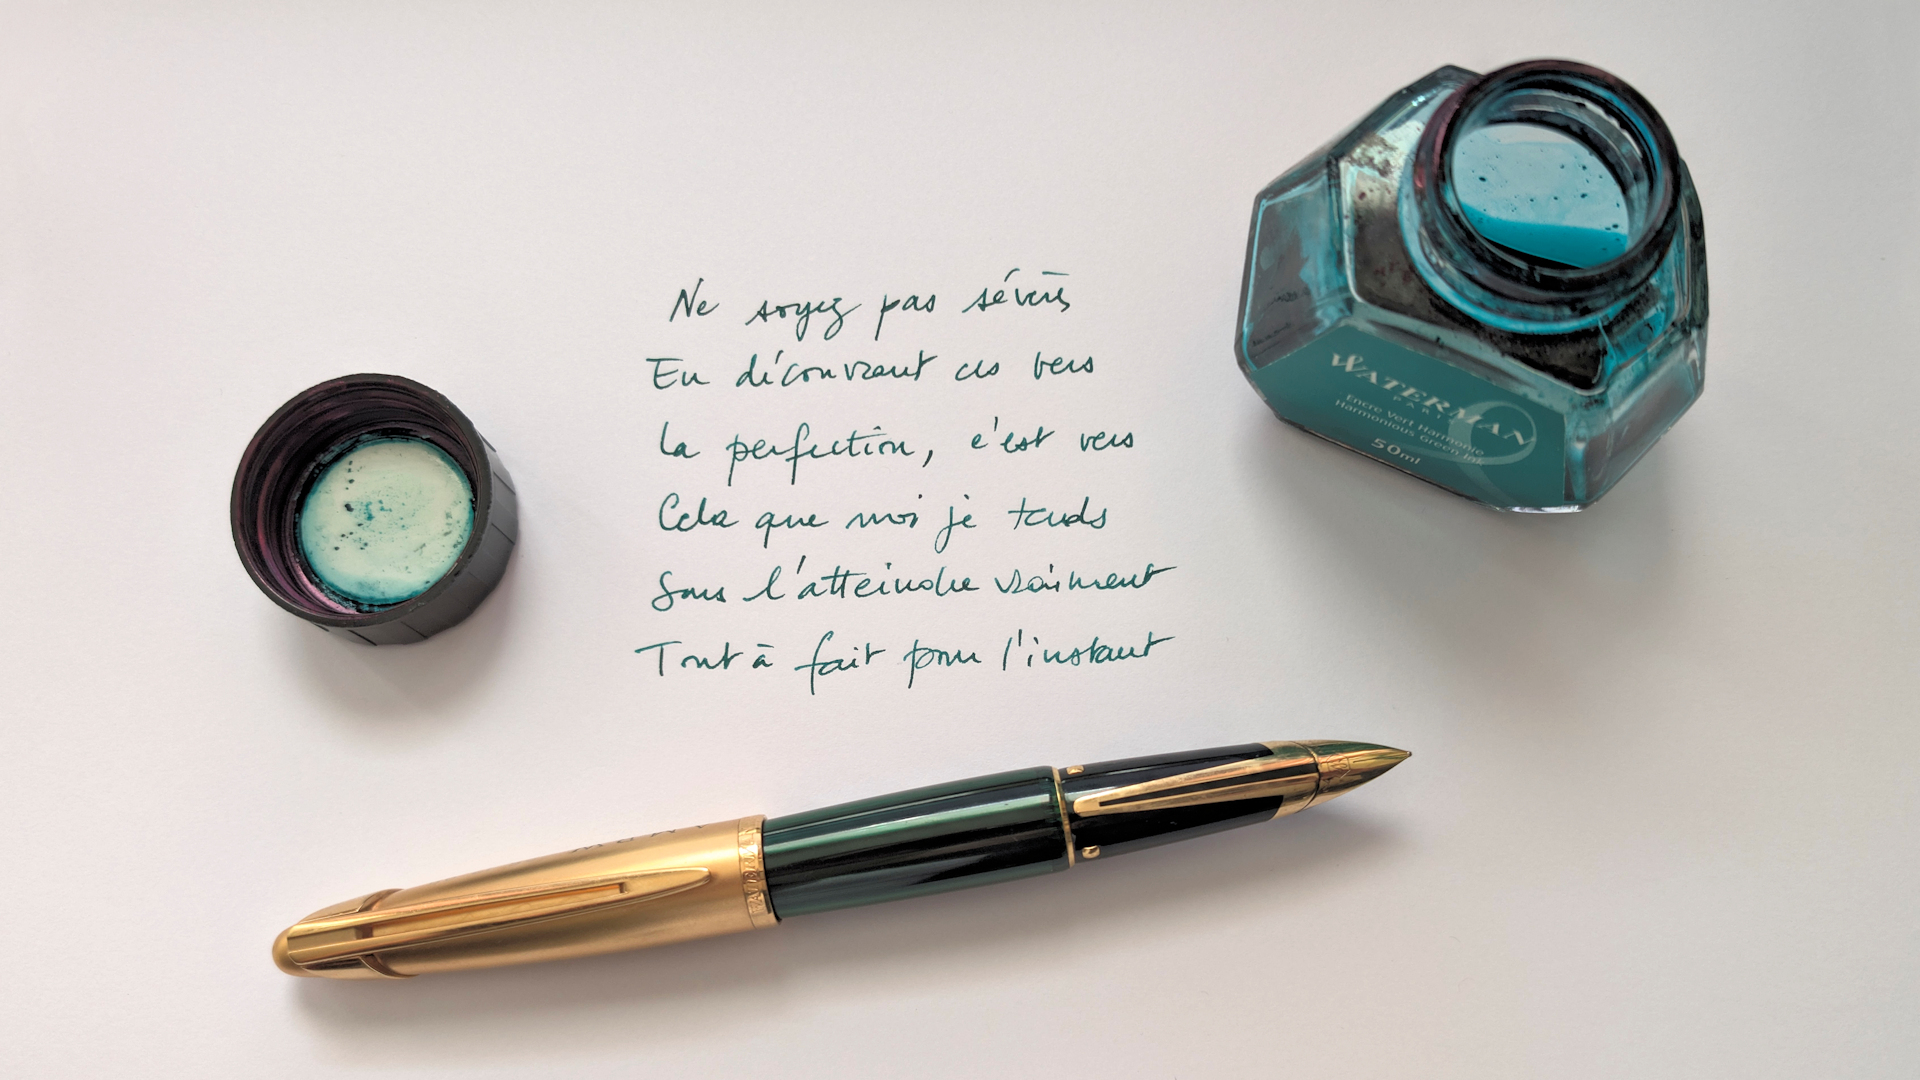 Ne soyez pas sévères
En découvrant ces vers
La perfection, c'est vers
Cela que moi je tends
Sans l'atteindre vraiment
Tout à fait pour l'instant
WATERMAN
PARIS
Encre Vert Harmonie
Harmonious Green Ink
50ml